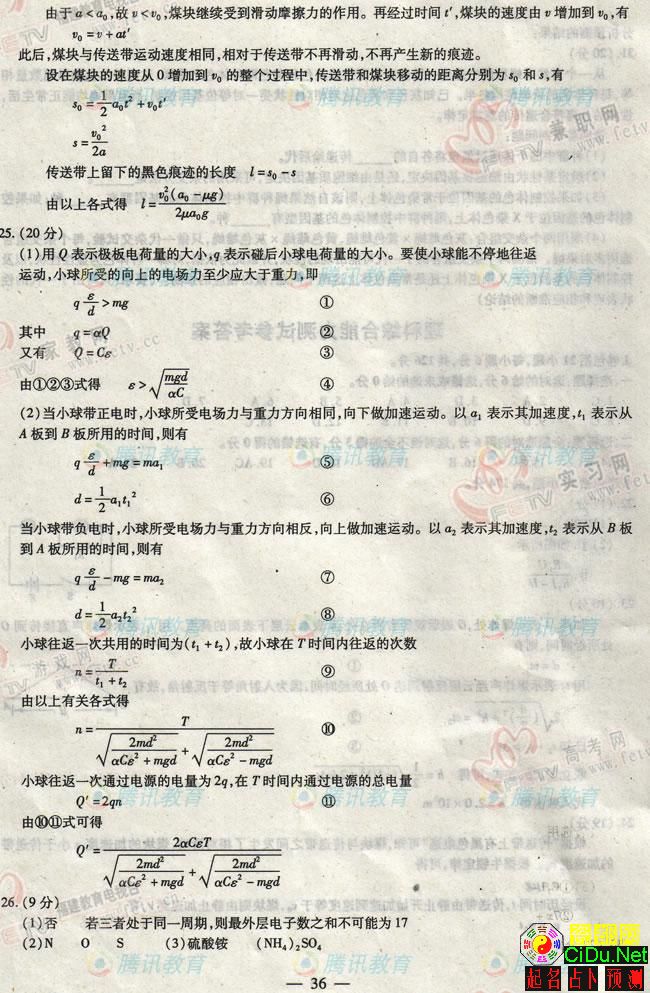 由于 a < a₀,故 v < v₀,煤块继续受到滑动摩擦力的作用。再经过时间 t′,煤块的速度由 v 增加到 v₀,有
v₀ = v + at′
此后,煤块与传送带运动速度相同,相对于传送带不再滑动,不再产生新的痕迹。
设在煤块的速度从 0 增加到 v₀ 的整个过程中,传送带和煤块移动的距离分别为 s₀ 和 s,有
s₀ = 1/2 a₀t² + v₀t′
s = v₀²/2a
传送带上留下的黑色痕迹的长度 l = s₀ - s
由以上各式得 l = v₀²(a₀ - μg)/2μa₀g
25. (20 分)
(1)用 Q 表示极板电荷量的大小,q 表示碰后小球电荷量的大小。要使小球能不停地往返
运动,小球所受的向上的电场力至少应大于重力,即
q ε/d > mg ①
其中 q = αQ ②
又有 Q = Cε ③
由①②③式得 ε > √(mgd/αC) ④
(2)当小球带正电时,小球所受电场力与重力方向相同,向下做加速运动。以 a₁ 表示其加速度,t₁ 表示从
A 板到 B 板所用的时间,则有
q ε/d + mg = ma₁ ⑤
d = 1/2 a₁t₁² ⑥
当小球带负电时,小球所受电场力与重力方向相反,向上做加速运动。以 a₂ 表示其加速度,t₂ 表示从 B 板
到 A 板所用的时间,则有
q ε/d - mg = ma₂ ⑦
d = 1/2 a₂t₂² ⑧
小球往返一次共用的时间为(t₁ + t₂),故小球在 T 时间内往返的次数
n = T/(t₁ + t₂) ⑨
由以上有关各式得
n = T/(√(2md²/(αCε² + mgd)) + √(2md²/(αCε² - mgd))) ⑩
小球往返一次通过电源的电量为 2q,在 T 时间内通过电源的总电量
Q′ = 2qn ⑪
由⑩⑪式可得
Q′ = 2αCεT/(√(2md²/(αCε² + mgd)) + √(2md²/(αCε² - mgd)))
26. (9 分)
(1)否 若三者处于同一周期,则最外层电子数之和不可能为 17
(2)N O S (3)硫酸铵 (NH₄)₂SO₄
— 36 —
腾讯教育
CiDu.Net
起名占卜预测